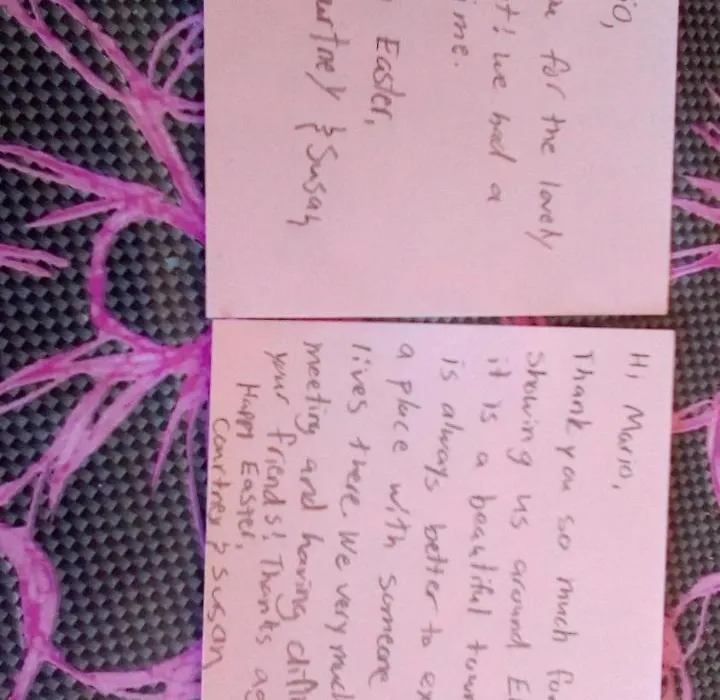 io,
for the lovely
t! we had a
ime.
Easter,
urtney & Susan
Hi, Mario,
Thank you so much for
showing us around E
it is a beautiful town
is always better to ex
a place with someone
lives there. We very much
meeting and having di
your friends! Thanks ag
Happy Easter,
Courtney & Susan